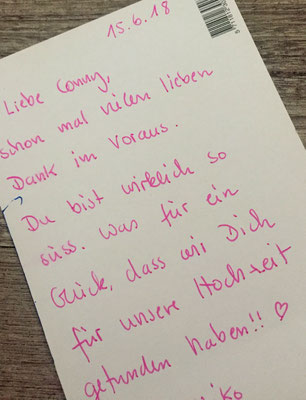 15.6.18
Liebe Conny,
schon mal vielen lieben
Dank im Voraus.
Du bist wirklich so
süss. Was für ein
Glück, dass wir Dich
für unsere Hochzeit
gefunden haben!! ♡